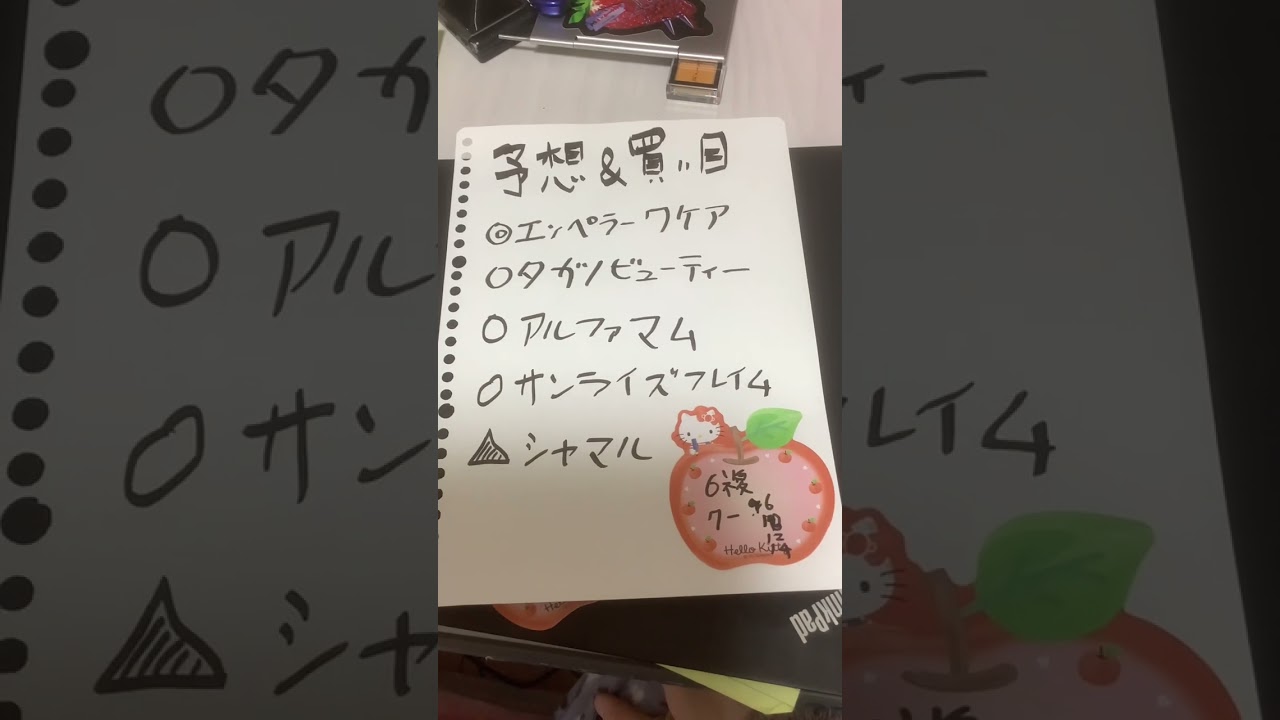 予想&買い目
◎エンペラーワケア
○タガノビューティー
○アルファマム
○サンライズフレイム
▲シャマル
6複
7ー
12
Hello Kitty
nkPad